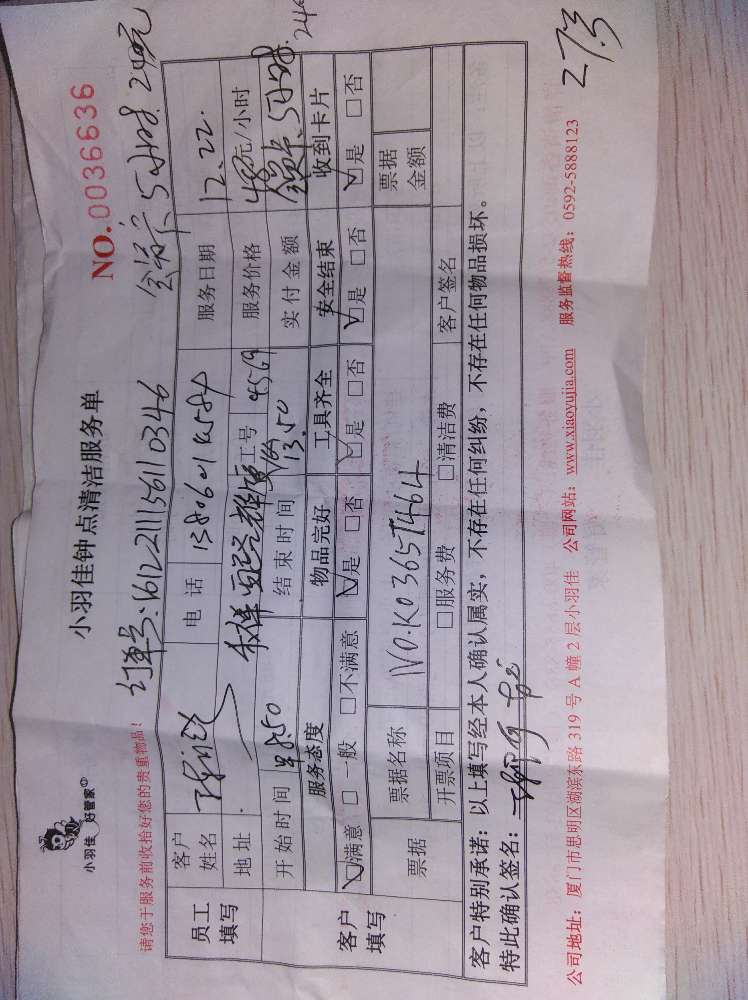 小羽佳 好管家
小羽佳钟点清洁服务单
NO.0036636
订单号:1612211156110346
5小时 240元
请您于服务前收拾好您的贵重物品!
员工填写
客户姓名
电话 13806014584
服务日期 12.22.
地址
工号 4569
服务价格 48元/小时
开始时间 早8.50
结束时间 13.50
实付金额 会员卡.5小时.
客户填写
服务态度 物品完好 工具齐全 安全结束 收到卡片
☑满意 □一般 □不满意 ☑是 □否 ☑是 □否 ☑是 □否 ☑是 □否
票据
票据名称 NO.K0365T464
票据金额
开票项目 □服务费 □清洁费 客户签名
客户特别承诺:以上填写经本人确认属实,不存在任何纠纷,不存在任何物品损坏。
特此确认签名:
公司地址:厦门市思明区湖滨东路319号A幢2层小羽佳 公司网站:www.xiaoyujia.com 服务监督热线:0592-5888123
273